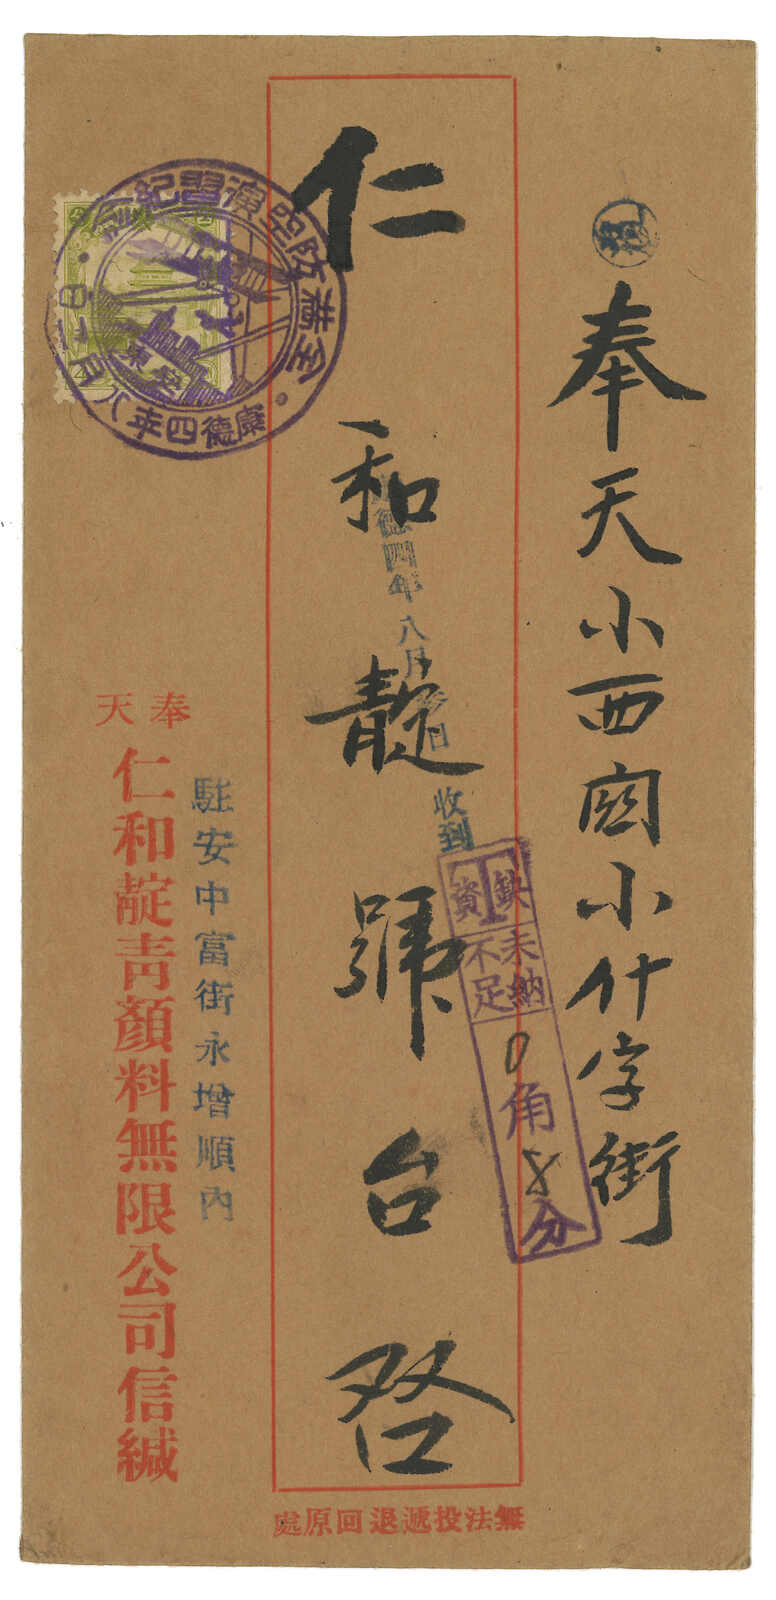 奉天小西関小什字街
仁和靛號台啓
康德四年八月 日收到
欠資
缺
未納
不足
0角8分
全滿防空演習紀念
康德四年八月二日
安東
駐安中富街永增順內
奉天
仁和靛青顏料無限公司信緘
無法投遞退回原處